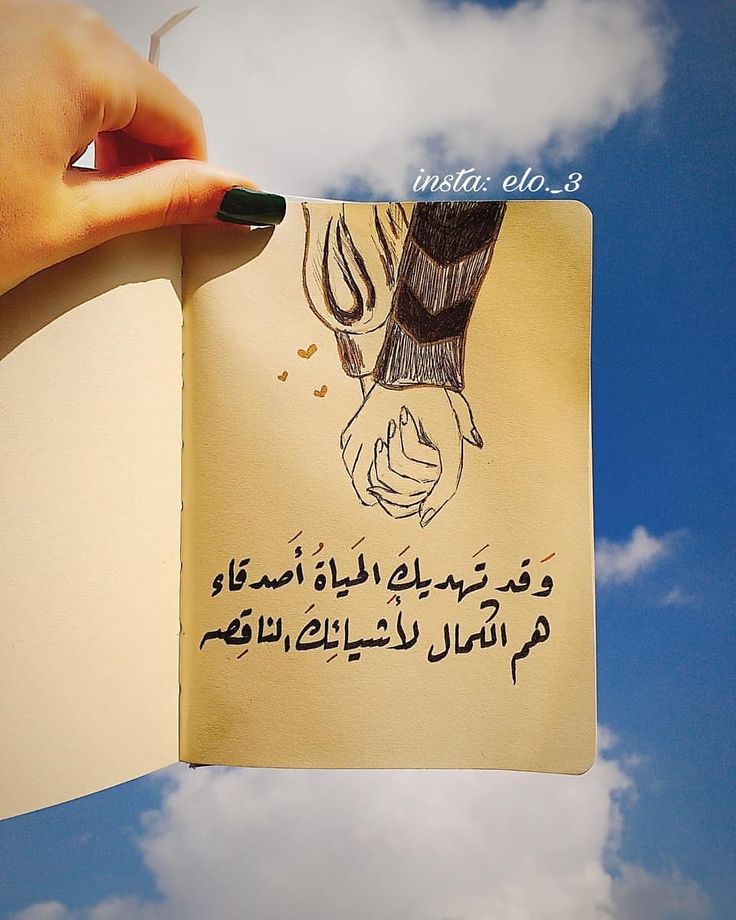 insta: elo._3
وَقد تَهديكَ الحَياةُ أَصدقاء
هم الكمال لأشيائِكَ الناقِصه